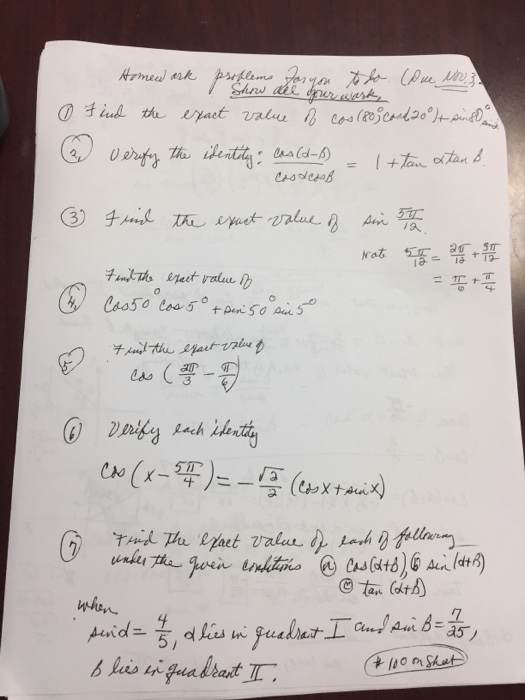 Homework problems for you to do (Due Nov. 3
Show all your work.
① Find the exact value of cos(80°)cos(20°) + sin80° sin
②, Verify the identity: cos(α-β) / cosαcosβ = 1 + tan α tan β.
③ Find the exact value of sin 5π/12.
Note 5π/12 = 2π/12 + 3π/12
= π/6 + π/4
Find the exact value of
④, cos50° cos5° + sin50° sin5°
⑤ Find the exact value of
cos (2π/3 - π/6)
⑥ Verify each identity
cos (x - 5π/4) = - √2/2 (cosx + sinx)
⑦ Find the exact value of each of following
under the given conditions ⓐ cos(α+β) ⓑ sin(α+β)
ⓒ tan(α+β)
when
sinα = 4/5, α lies in quadrant I and sin β = 7/25,
β lies in quadrant II.